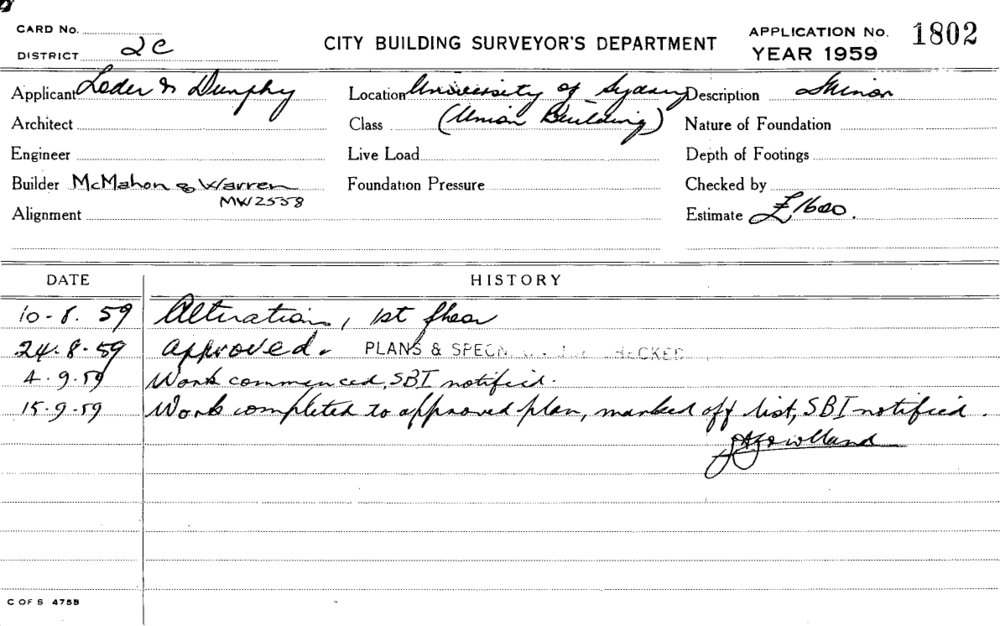 CARD No.
DISTRICT 2C
CITY BUILDING SURVEYOR'S DEPARTMENT
APPLICATION No. 1802
YEAR 1959
Applicant Loder & Dunphy
Location University of Sydney
Description Minor
Architect
Class (Union Building)
Nature of Foundation
Engineer
Live Load
Depth of Footings
Builder McMahon & Warren
MW2558
Foundation Pressure
Checked by
Alignment
Estimate £1600.
DATE HISTORY
10-8. 59 Alteration, 1st floor
24-8-59 Approved. PLANS & SPECN CHECKED
4-9.59 Work commenced, SBI notified.
15-9-59 Work completed to approved plan, marked off list, SBI notified.
C OF S 475B